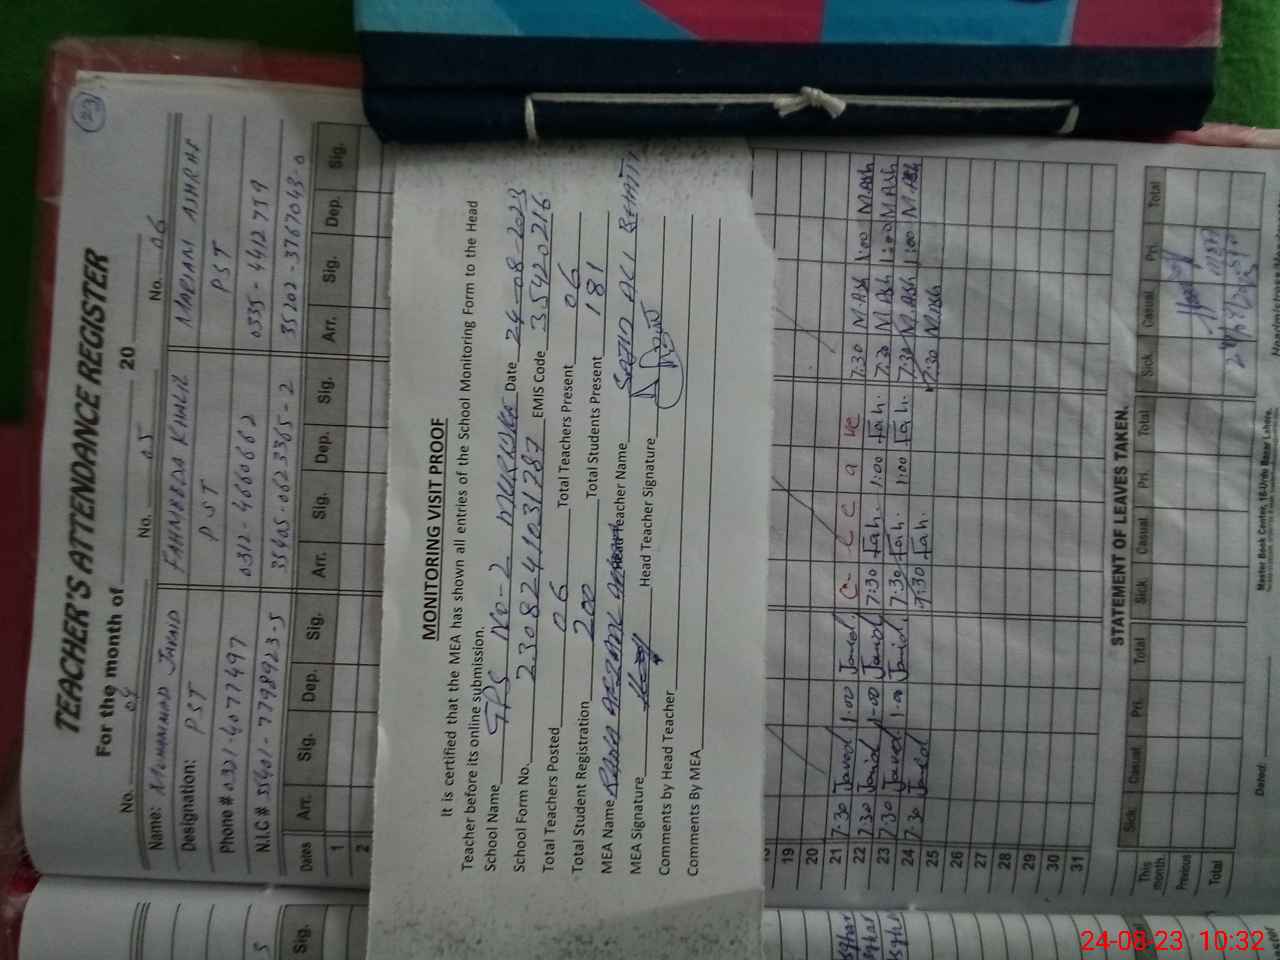 23
TEACHER'S ATTENDANCE REGISTER
For the month of 20
No. 04 No. 05 No. 06
Name: MUHAMMAD JAVAID FAHMEEDA KHALIL MARIAM ASHRAF
Designation: PST PST PST
Phone # 0321-4077497 0312-4660662 0335-4412759
N.I.C # 35401-7798923-5 35405-0623365-2 35202-3767043-0
Dates Arr. Sig. Dep. Sig. Arr. Sig. Dep. Sig. Arr. Sig. Dep. Sig.
1
2
MONITORING VISIT PROOF
It is certified that the MEA has shown all entries of the School Monitoring Form to the Head
Teacher before its online submission.
School Name GPS No-2 MURIDKE Date 24-08-2023
School Form No. 230824103128 EMIS Code 35420216
Total Teachers Posted 06 Total Teachers Present 06
Total Student Registration 200 Total Students Present 181
MEA Name Head Teacher Name SAJID ALI BHATTI
MEA Signature Head Teacher Signature
Comments by Head Teacher
Comments By MEA
19
20
21 7:30 Javed 1:00 Javed C L C a 7:30 M.Ash 1:00 M.Ash
22 7:30 Javed 1:00 Javed 7:30 Fah. 1:00 Fah. 7:30 M.Ash 1:00 M.Ash
23 7:30 Javed 1:00 Javed 7:30 Fah. 1:00 Fah. 7:30 M.Ash 1:00 M.Ash
24 7:30 Javed 7:30 Fah. 7:30 M.Ash
25
26
27
28
29
30
31
STATEMENT OF LEAVES TAKEN.
Sick Casual Pri. Total Sick. Casual Pri. Total Sick Casual Pri. Total
This month.
Previous
Total
Dated:
Master Book Center, 16-Urdu Bazar Lahore.
24-08-23 10:32